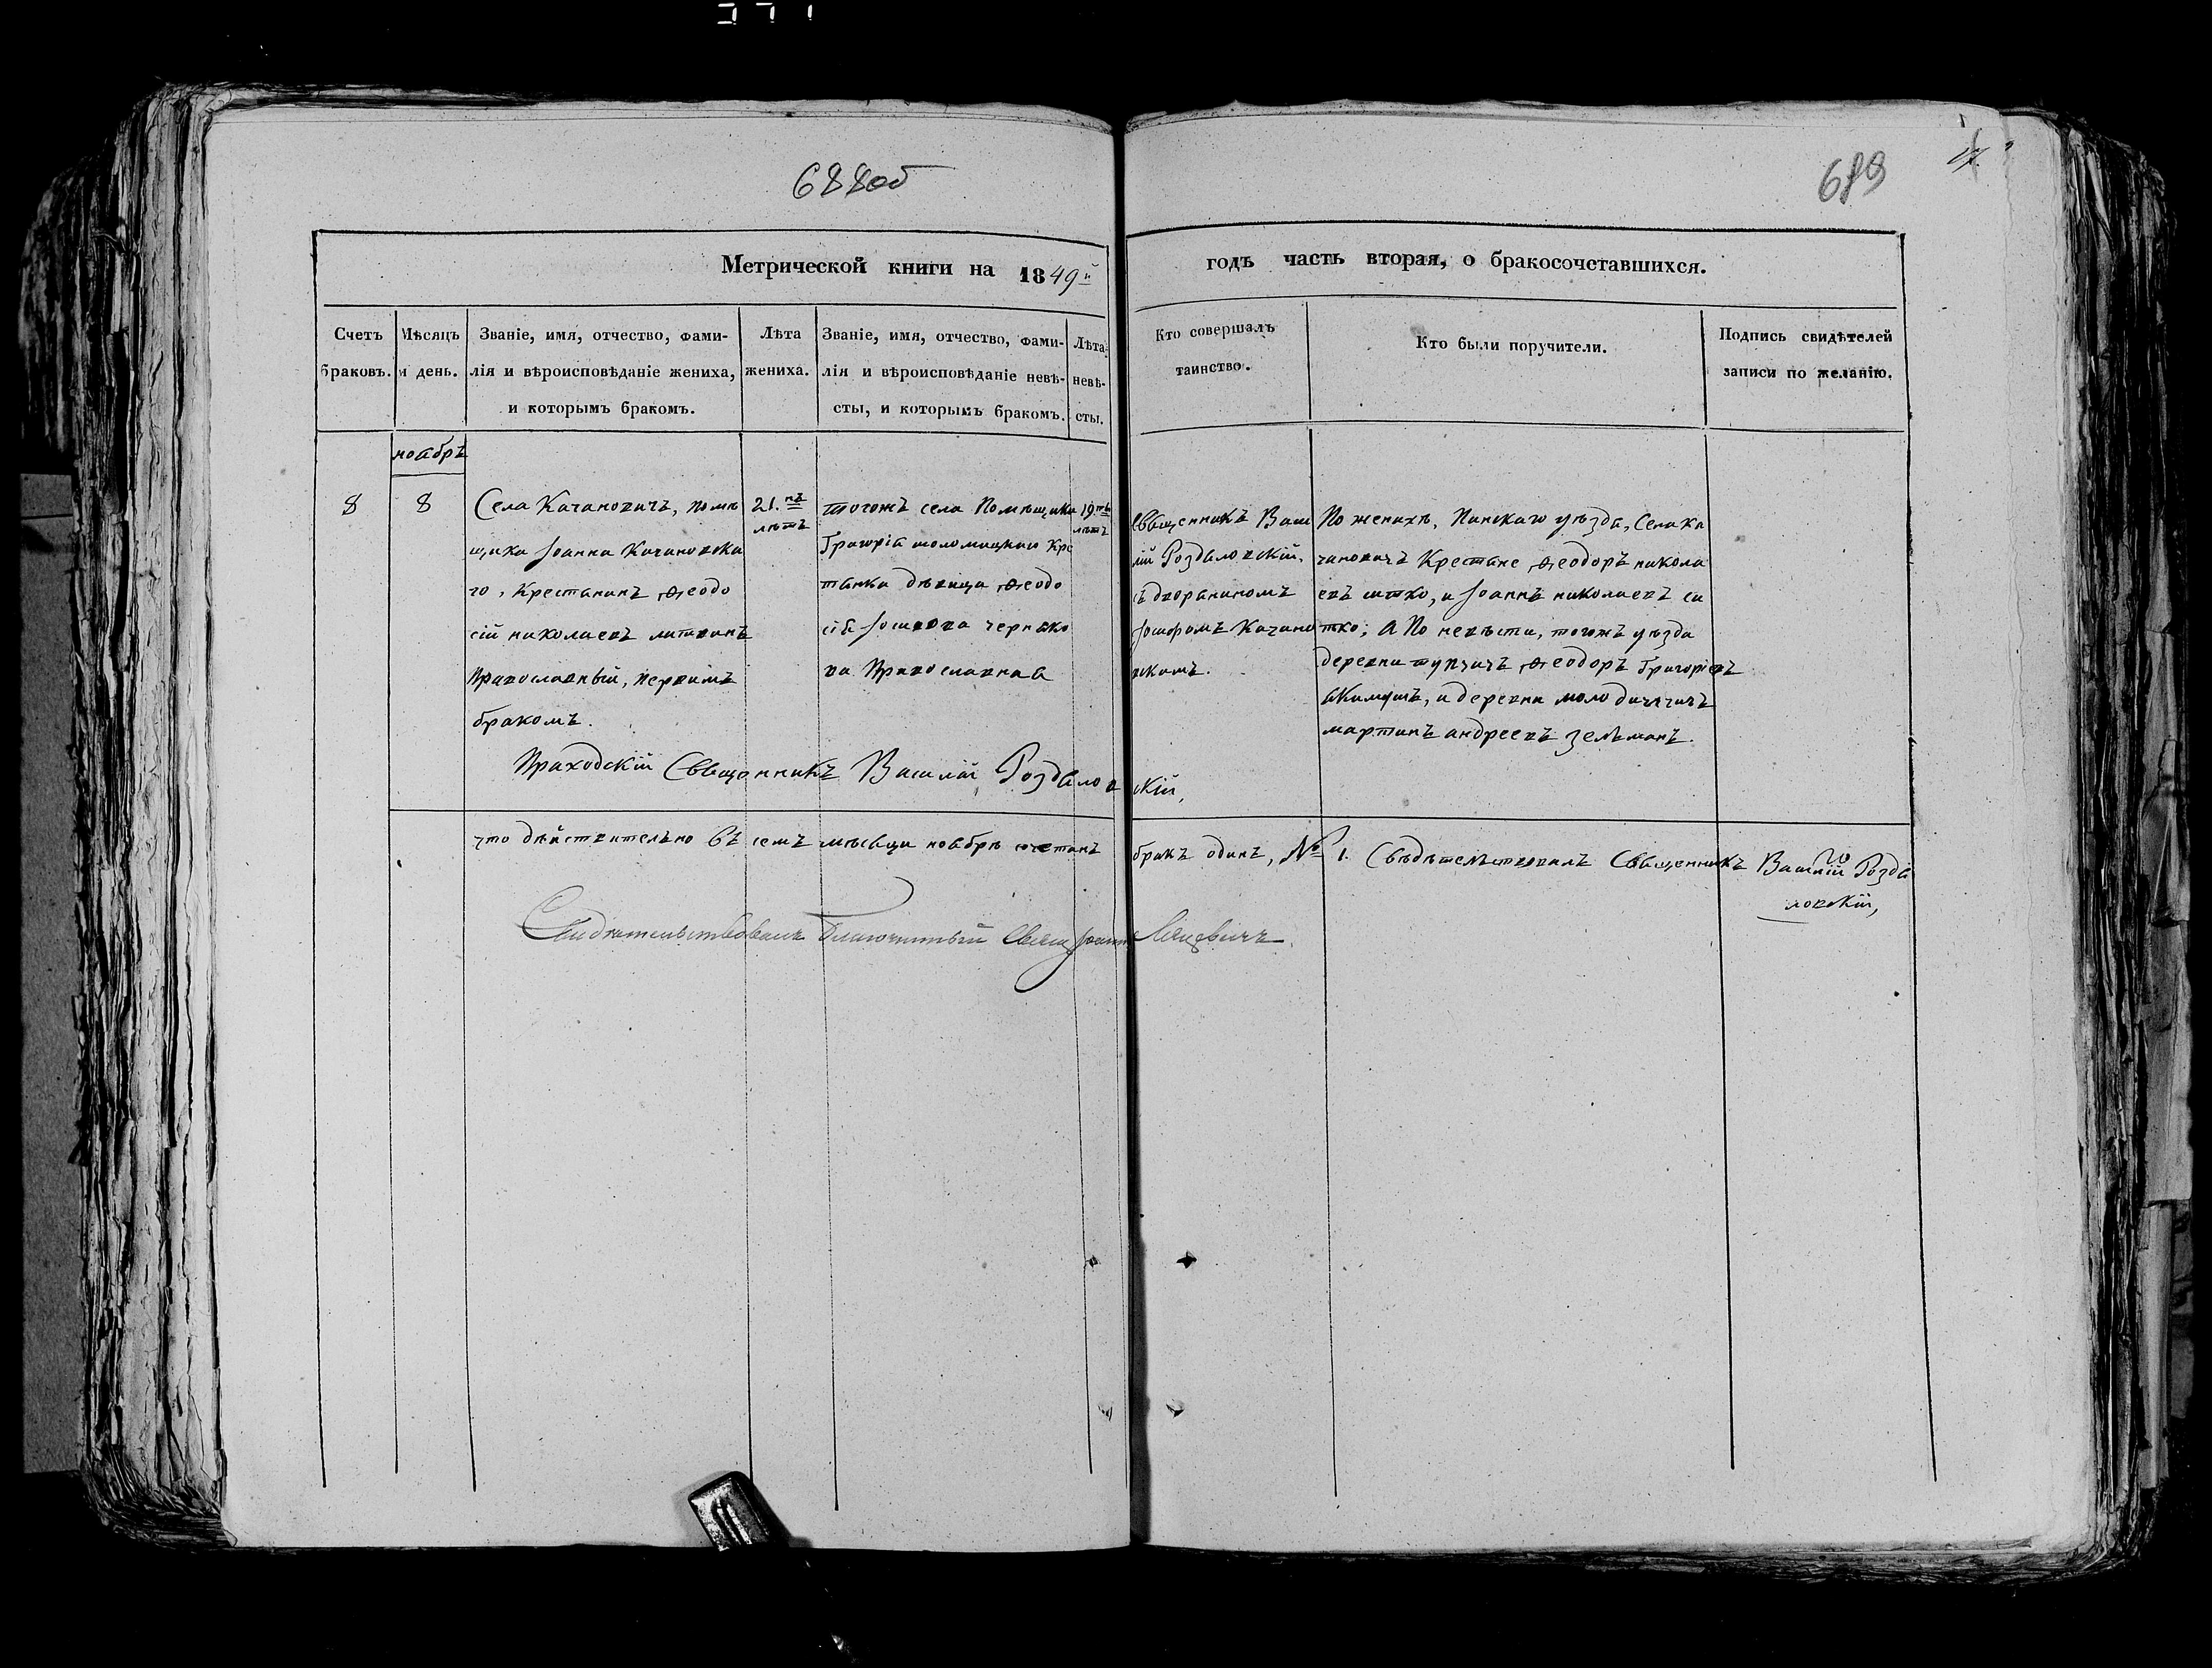 688об
689
Метрической книги на 1849й годъ часть вторая, о бракосочетавшихся.
Счетъ браковъ.
Мѣсяцъ и день.
Званіе, имя, отчество, фами-
лія и вѣроисповѣданіе жениха,
и которымъ бракомъ.
Лѣта
жениха.
Званіе, имя, отчество, фами-
лія и вѣроисповѣданіе невѣ-
сты, и которымъ бракомъ.
Лѣта
невѣ-
сты.
Кто совершалъ
таинство.
Кто были поручители.
Подпись свидѣтелей
записи по желанію.
ноябрь
8
8
Села Качановичъ, помѣ
щика Іоанна Качановска
го, Крестанинъ Ѳеодо
сій николаевъ литвинъ
Православный, первымъ
бракомъ.
21.
лѣтъ
тогожъ села Помѣщика
Григорія Кре
станка дѣвица Ѳеодо
сія
ва Православная
19
лѣтъ
Священникъ Васи
лій Роздяловскій.
съ дворяниномъ
Качано
вскимъ.
По женихѣ, Пинскаго уѣзда, Села Ка
чановичъ Крестане Ѳеодоръ никола
евъ и Іоаннъ николаевъ
А По невѣсти, тогожъ уѣзда
деревни Ѳеодоръ Григоріевъ
и деревни
мартинъ андреевъ зелѣманъ.
Приходскій Священникъ Василій Роздяловскій,
что дѣйствительно въ семъ мѣсяци ноябрѣ сочетанъ бракъ одинъ, № 1. Свѣдѣтельствовалъ Священникъ Василій Роздя
ловскій,
Свидѣтельствовалъ Благочинный Свящ Іоаннъ